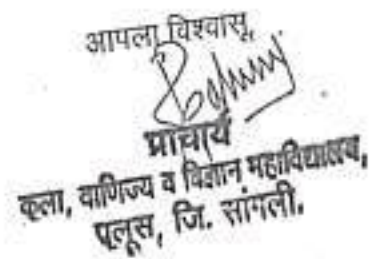 आपला विश्वासू,
प्राचार्य
कला, वाणिज्य व विज्ञान महाविद्यालय,
पलूस, जि. सांगली.